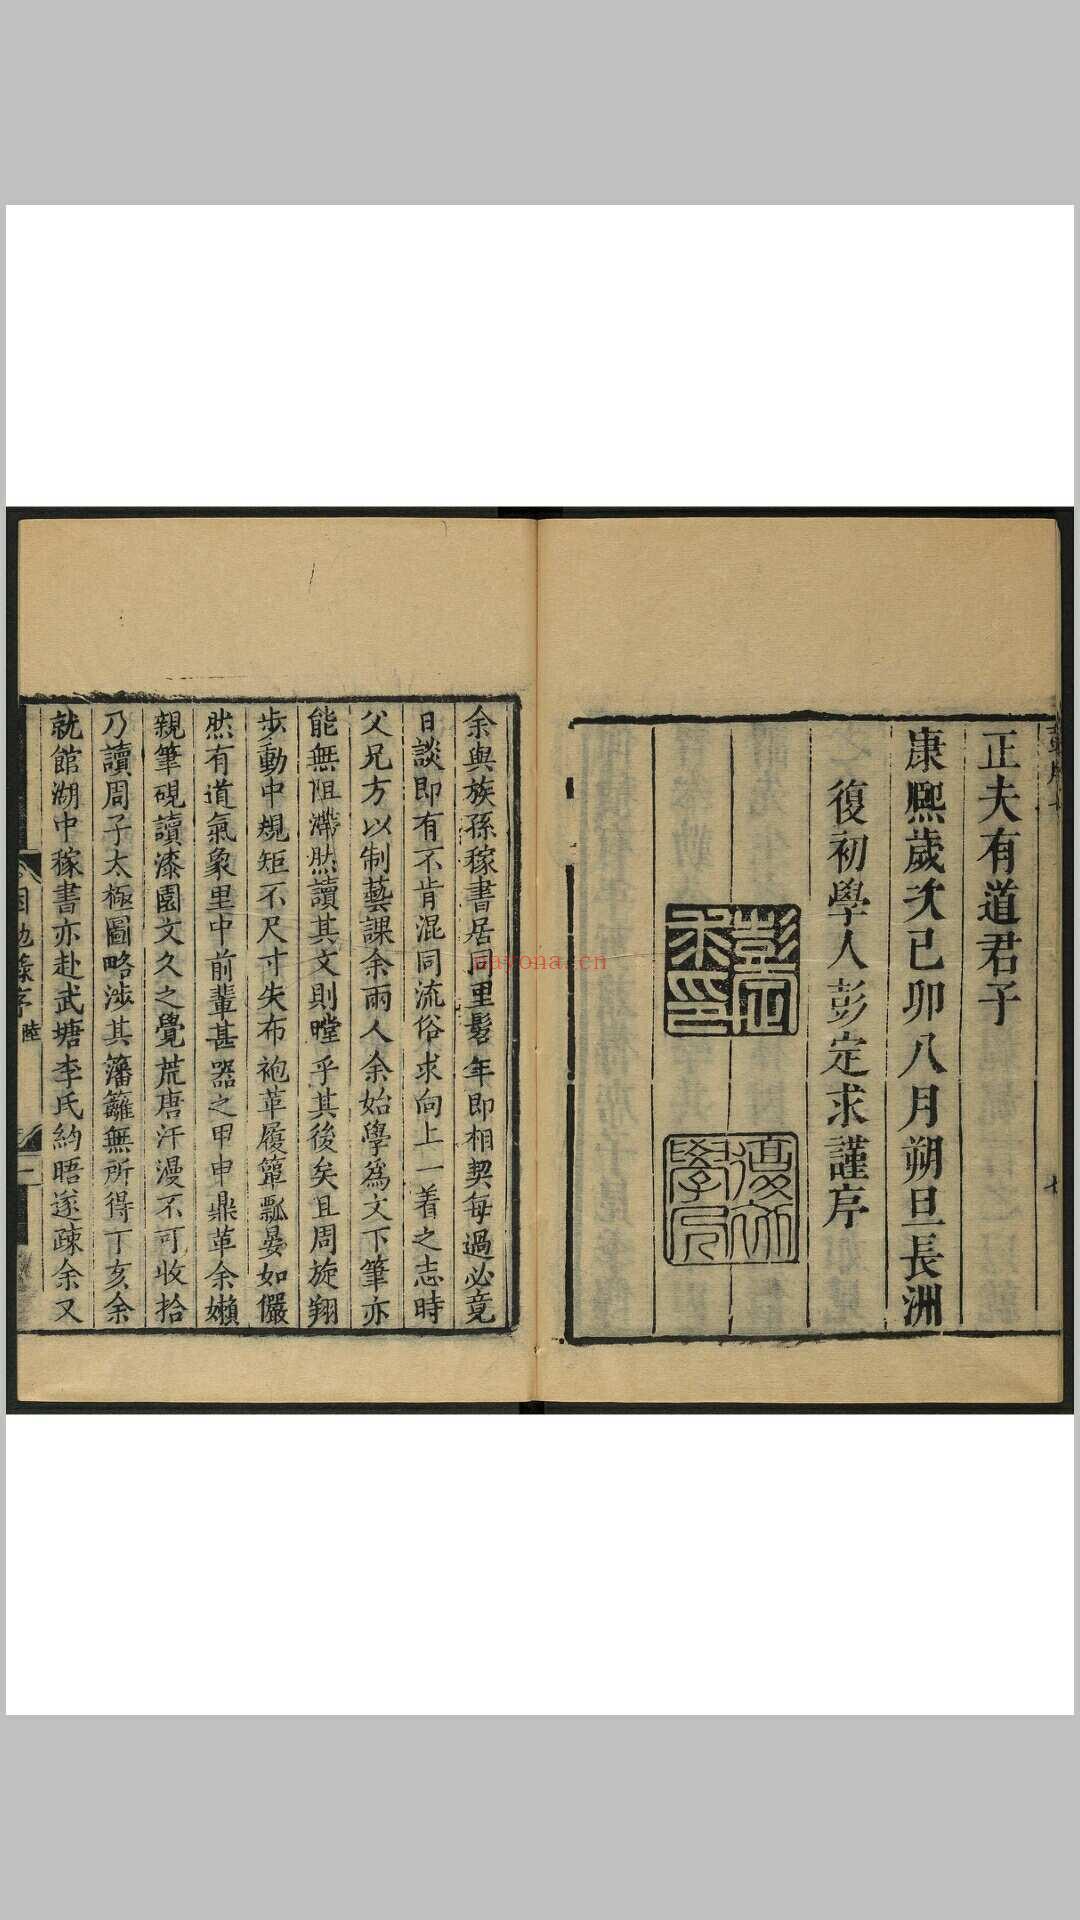 正夫有道君子
康熙歲次己卯八月朔旦長洲
復初學人彭定求謹序
彭定求印
復初學人
余與族孫稼書居同里髫年即相契每過必竟
日談即有不肯混同流俗求向上一着之志時
父兄方以制藝課余兩人余始學爲文下筆亦
能無阻滯然讀其文則瞠乎其後矣且周旋翔
步動中規矩不尺寸失布袍革履簞瓢晏如儼
然有道氣象里中前輩甚器之甲申鼎革余嬾
親筆硯讀漆園文久之覺荒唐汗漫不可收拾
乃讀周子太極圖略涉其籓籬無所得丁亥余
就館湖中稼書亦赴武塘李氏約晤遂疎余又
困勉錄序 陸 一
nayona.cn